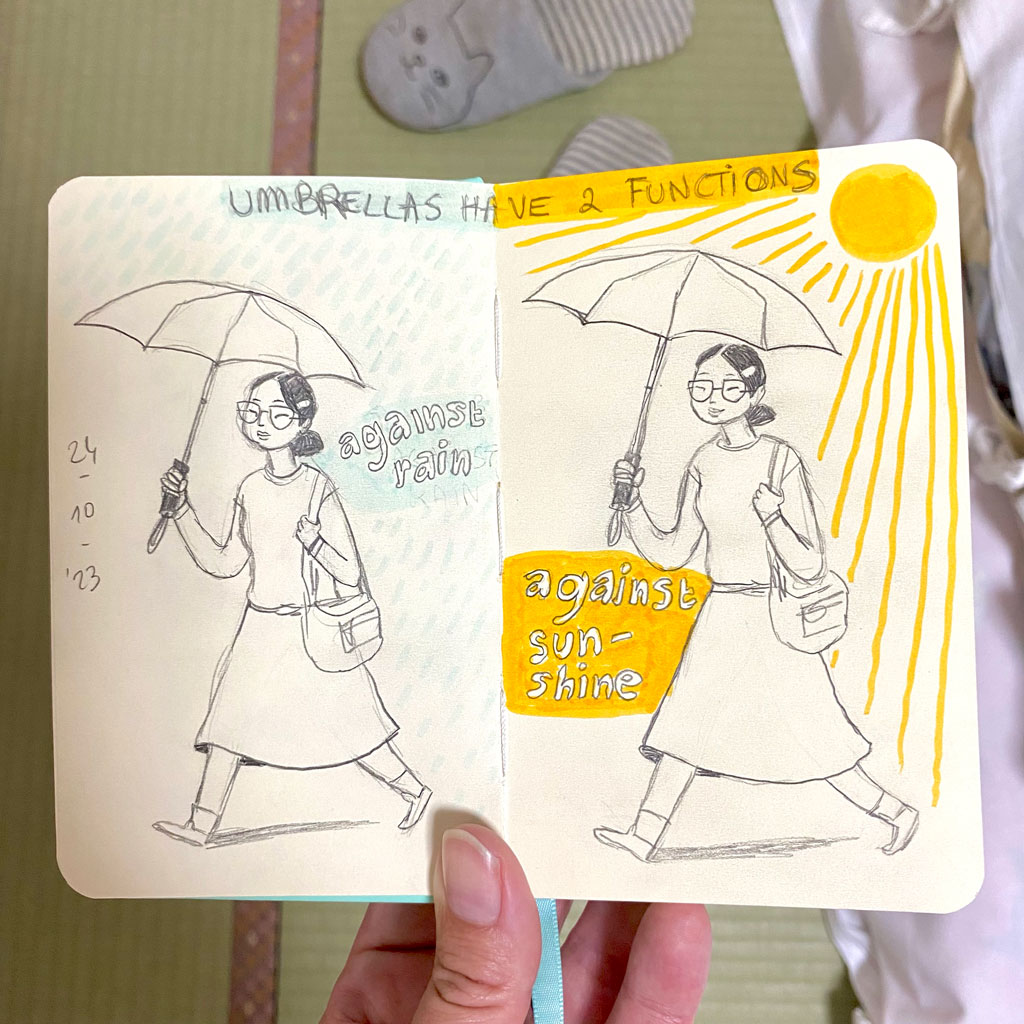 UMBRELLAS HAVE 2 FUNCTIONS
against
rain
24
-
10
-
'23
against
sun-
shine